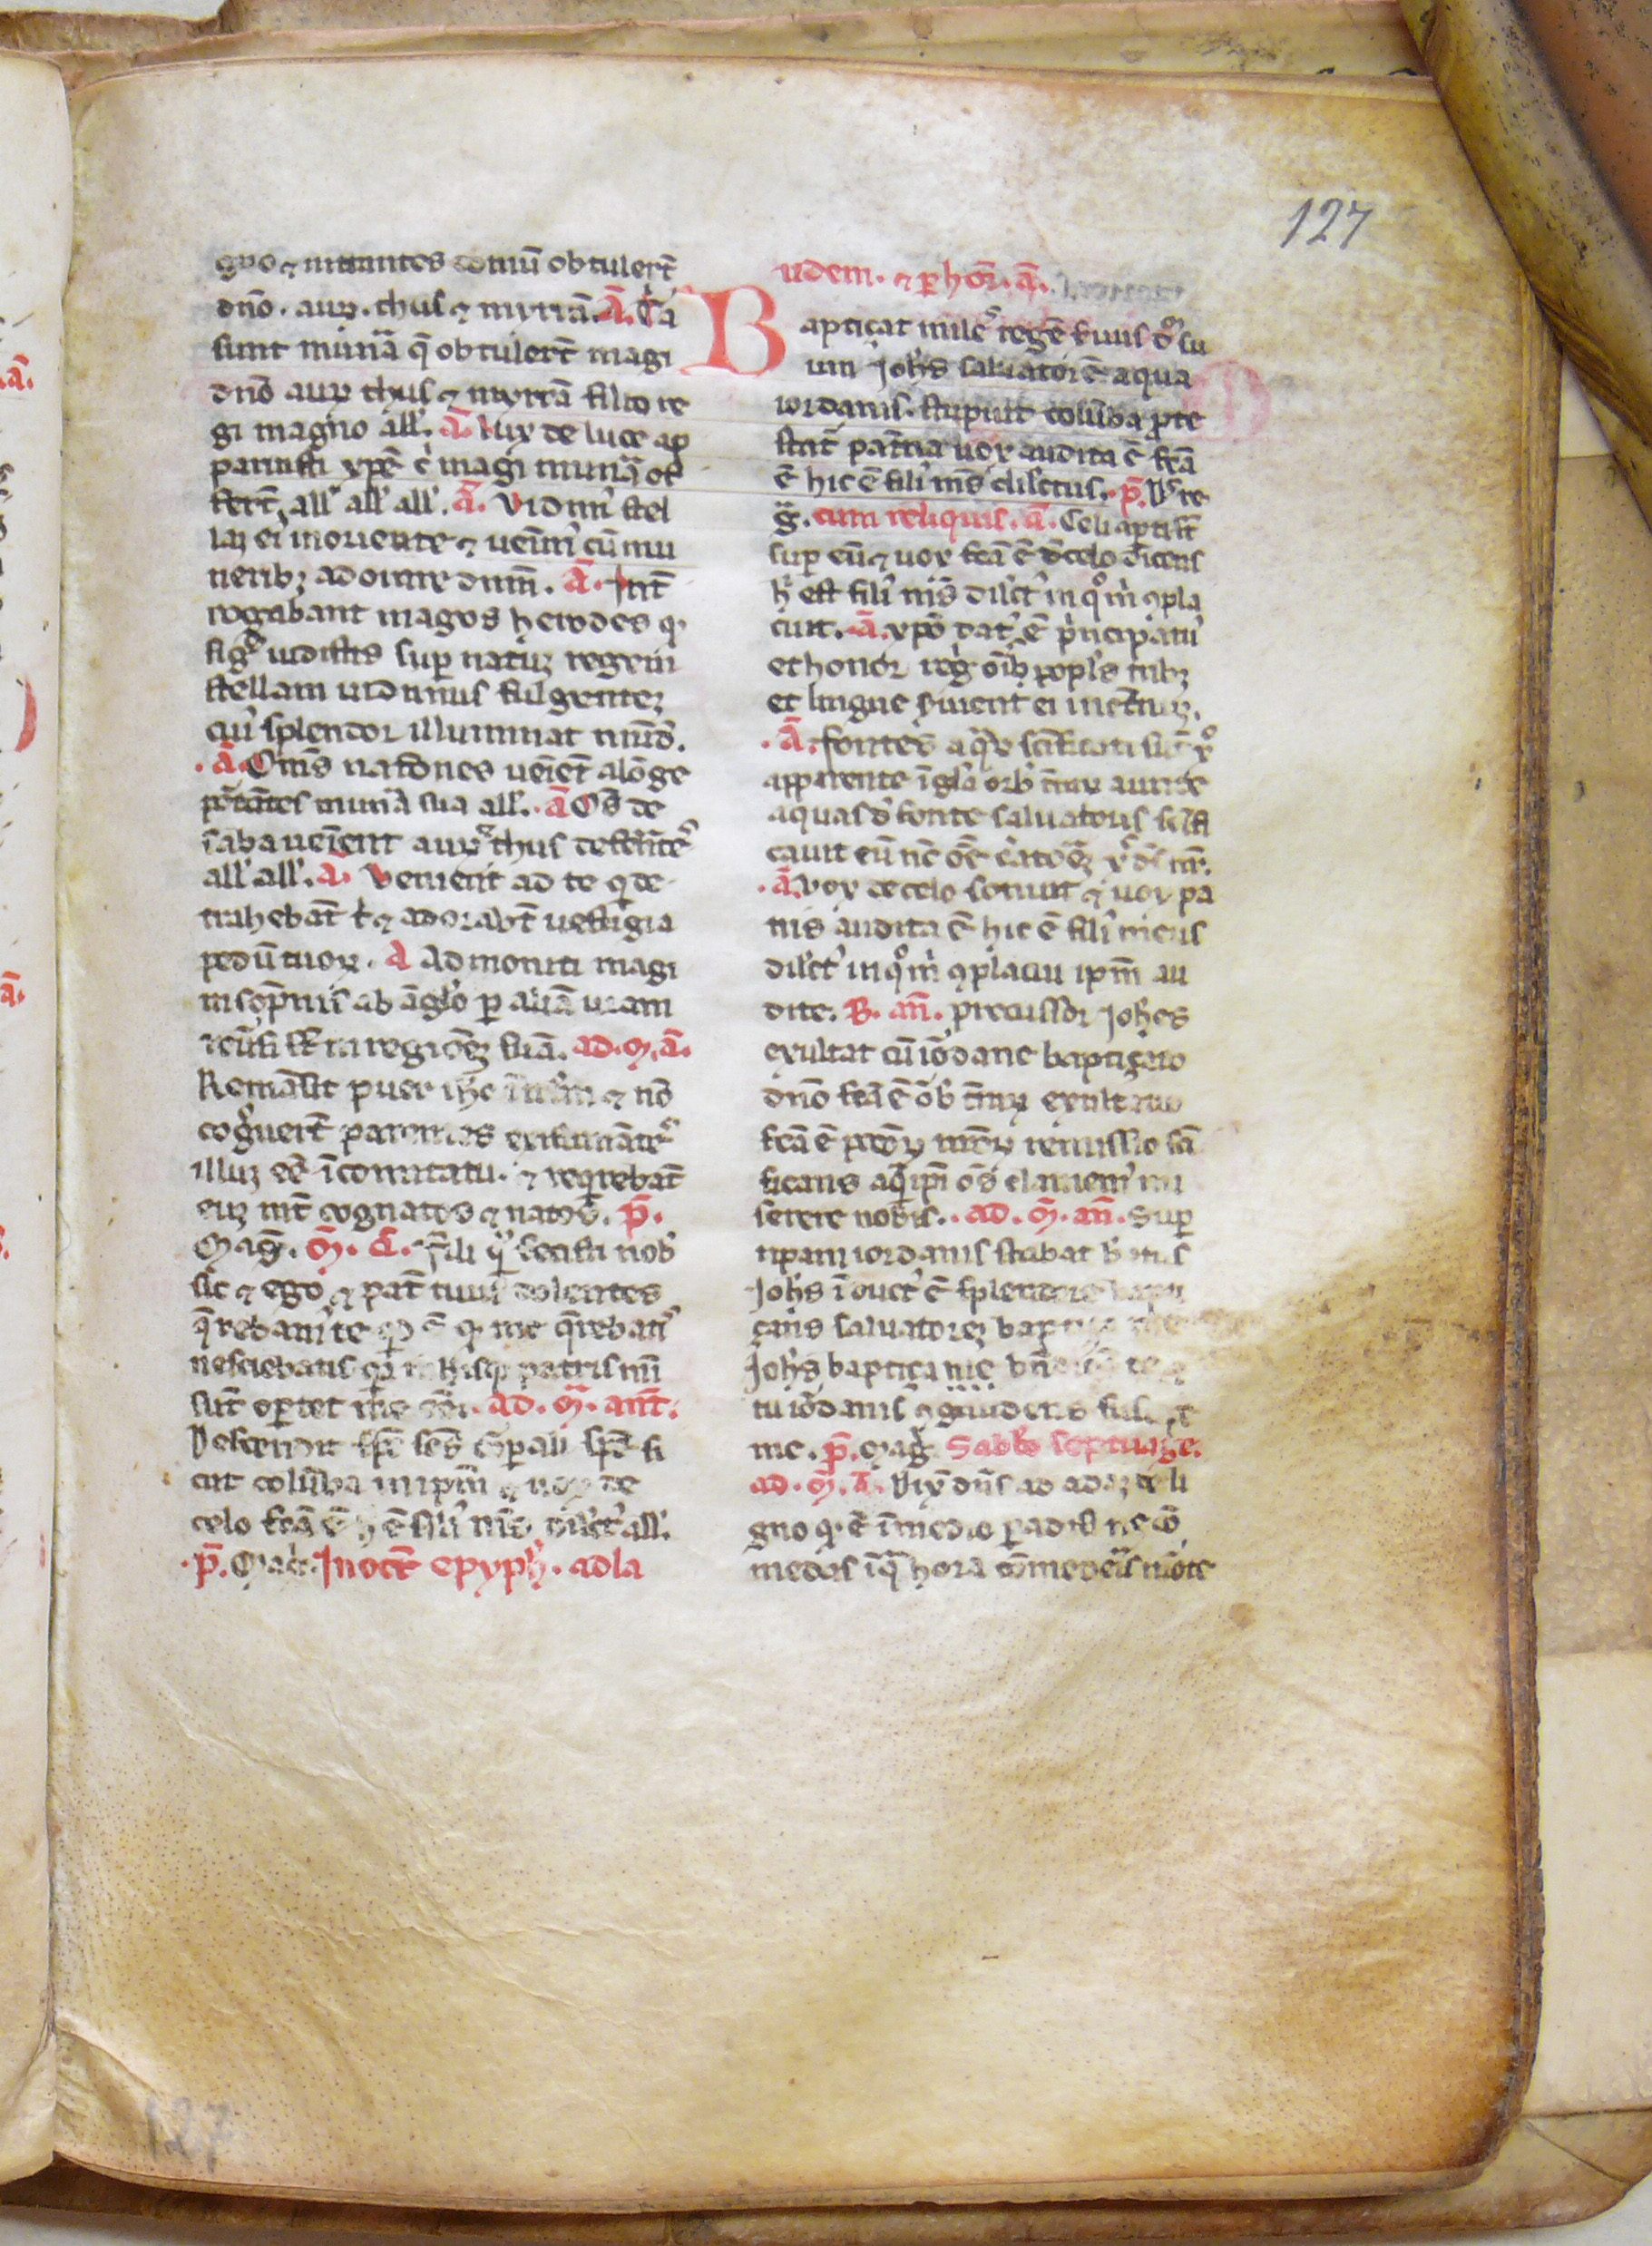 127
gno ⁊ intrantes domũ obtulert̃
dño. aur̃. thus ⁊ myrrã. Ã. Tria
sunt munã q̃ obtulert̃ magi
dño aur̃ thus ⁊ myrrã filio re
gi magno all'. Ã. Lux de luce ap
paruisti xp̃e c' magi munã of
fert̃, all' all' all'. Ã. Vidim' stel
lã ei' inoriente ⁊ uenim' cũ mu
neribꝫ adorare dnm̃. Ã. Int̃
rogabant magos herodes q.
sig̃ uidistis sup natuꝫ regem
stellam uidimus fulgenteꝫ
cui' splendor illuminat mũd.
.Ã. Om̃s nationes uenient̃ alonge
portantes munã sua all'. Ã Om̃s de
saba uenient aur̃ thus deferentes
all' all'. Ã. Venient ad te q de
trahebãt t' ⁊ adorabt̃ uestigia
pedũ tuoꝝ. A Admoniti magi
insopnis ab ãglo p aliã uiam
reũsi st̃ in regioneꝫ suã. ad. m̃. ã.
Remãsit puer ihc in irl̃m ⁊ nõ
cog'uert̃ parentes existimãtes
illuꝫ ee ĩcomitatu. ⁊ reqrebãt
euꝫ int̃ cognatos ⁊ notos. p̃.
Mag̃. m̃. ã. Fili qͥ fecisti nob'
sic ⁊ ego ⁊ pat̃ tuus dolentes
q̃rebam' te qͥ ẽ q me q̃rebatis
nesciebatis qã in hisq patris mei
sũt oportet me ee. ad. m̃. ant̃.
Descendit sp̃c scs̃ corpali spẽ si
cut colũba in ipm̃ ⁊ uox de
celo fcã ẽ h ẽ fili' mẽ dilct' all'.
.p̃. Mag̃. In oct̃ epyph. adla
udem. ⁊ p hor̃. ã.
Baptiçat mile' regẽ seruus dñm su
um Joh̃s saluatorẽ aqua
iordanis. stupuit colũba prote
stat̃ paterna uox audita ẽ fcã
ẽ hic ẽ fili' mẽs dilectus. p̃. Ds̃ re
g̃. cum reliquis. ã. Celi apti st̃
sup eũ ⁊ uox fcã ẽ d celo dicens
h est fili' mẽs dilct' in qͦ m' ꝯpla
cuit. Ã. xpõ dat' ẽ pncipatu'
et honor reg' õib popl's tribꝫ
et lingue seruient ei in et̃nuꝫ.
.Ã. Fontes aq̃ꝝ scificati sũt xͦ
apparente ĩ gl'a orb' t̃rraꝝ aurite
aquas d fonte saluatoris scifi
cauit eñ nc̃ õẽ creatõeꝫ xp̃s ds nr̃.
.Ã. Vox de celo sonuit ⁊ uox pa
tris audita ẽ hic ẽ fili' meus
dilct' in qͦ m' ꝯplacui ipm̃ au
dite. B. añ. Precussor Joh̃es
exultat cũ iordane baptiçato
dño fcã ẽ orb' t̃rraꝝ exultatio
fcã ẽ pccõꝝ nrõꝝ remissio sc̃i
ficans aq̃s ipi õs clamem' mi
serere nobis. ad. m̃. añ. Sup
ripam iordanis stabat btus
Joh̃s ĩduct' ẽ splendore bapti
çans saluatoreꝫ baptiça me
Joh̃s baptiça me bñ
tu iordanis ꝯgaudens
me. p̃. Mag̃. Sabbo septuage.
ad. m̃. ã. Dix̃ dñs ad adaꝫ de li
gno q ẽ ĩmedio paradisi ne cõ
medas ĩq hora cõmederis morte
127